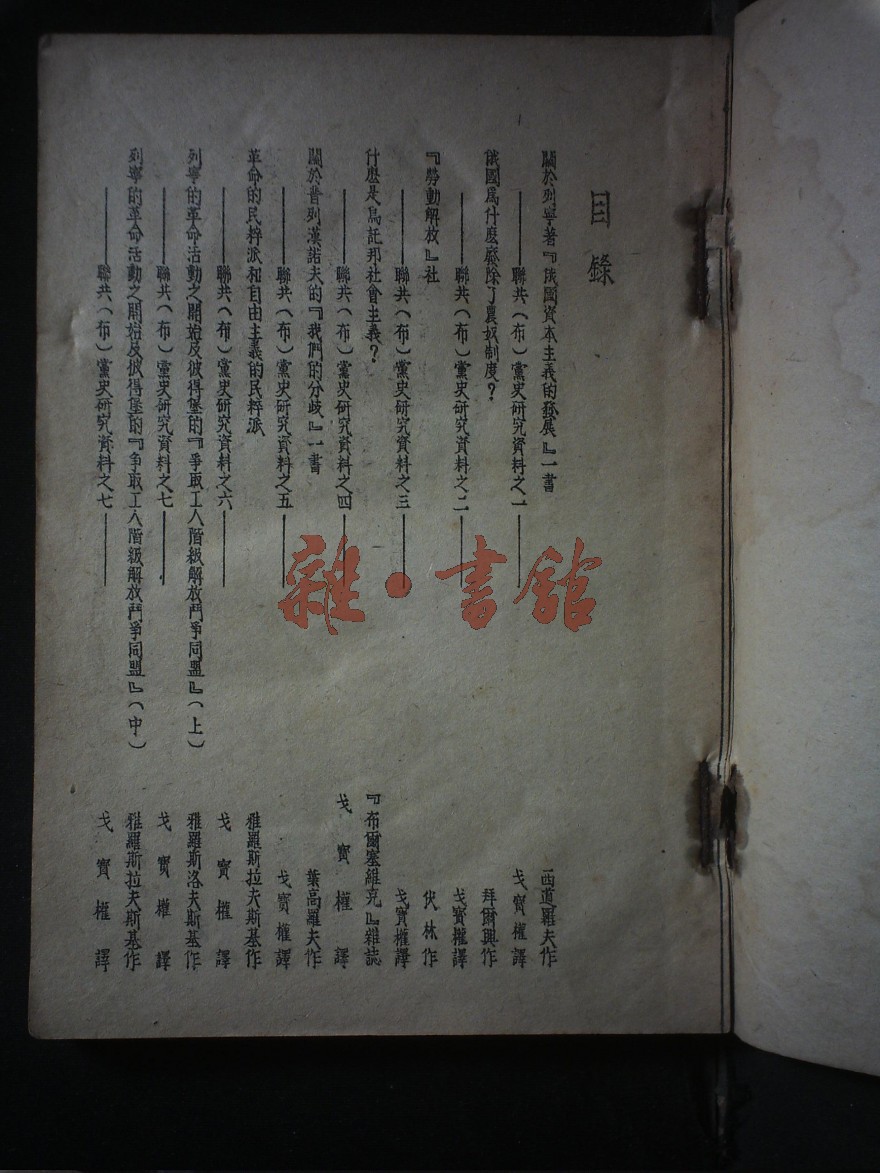 目錄
關於列寧著『俄國資本主義的發展』一書
西道羅夫作
——聯共（布）黨史研究資料之一——
戈寶權譯
俄國爲什麽廢除了農奴制度？
拜爾興作
——聯共（布）黨史研究資料之二——
戈寶權譯
『勞動解放』社
伏林作
——聯共（布）黨史研究資料之三——
戈寶權譯
什麽是烏託邦社會主義？
『布爾塞維克』雜誌
——聯共（布）黨史研究資料之四——
戈寶權譯
關於普列漢諾夫的『我們的分歧』一書
葉高羅夫作
——聯共（布）黨史研究資料之五——
戈寶權譯
革命的民粹派和自由主義的民粹派
雅羅斯拉夫斯基作
——聯共（布）黨史研究資料之六——
戈寶權譯
列寧的革命活動之開始及彼得堡的『爭取工人階級解放鬥爭同盟』（上）
雅羅斯洛夫斯基作
——聯共（布）黨史研究資料之七——
戈寶權譯
列寧的革命活動之開始及彼得堡的『爭取工人階級解放鬥爭同盟』（中）
雅羅斯拉夫斯基作
——聯共（布）黨史研究資料之七——
戈寶權譯
雜·書館